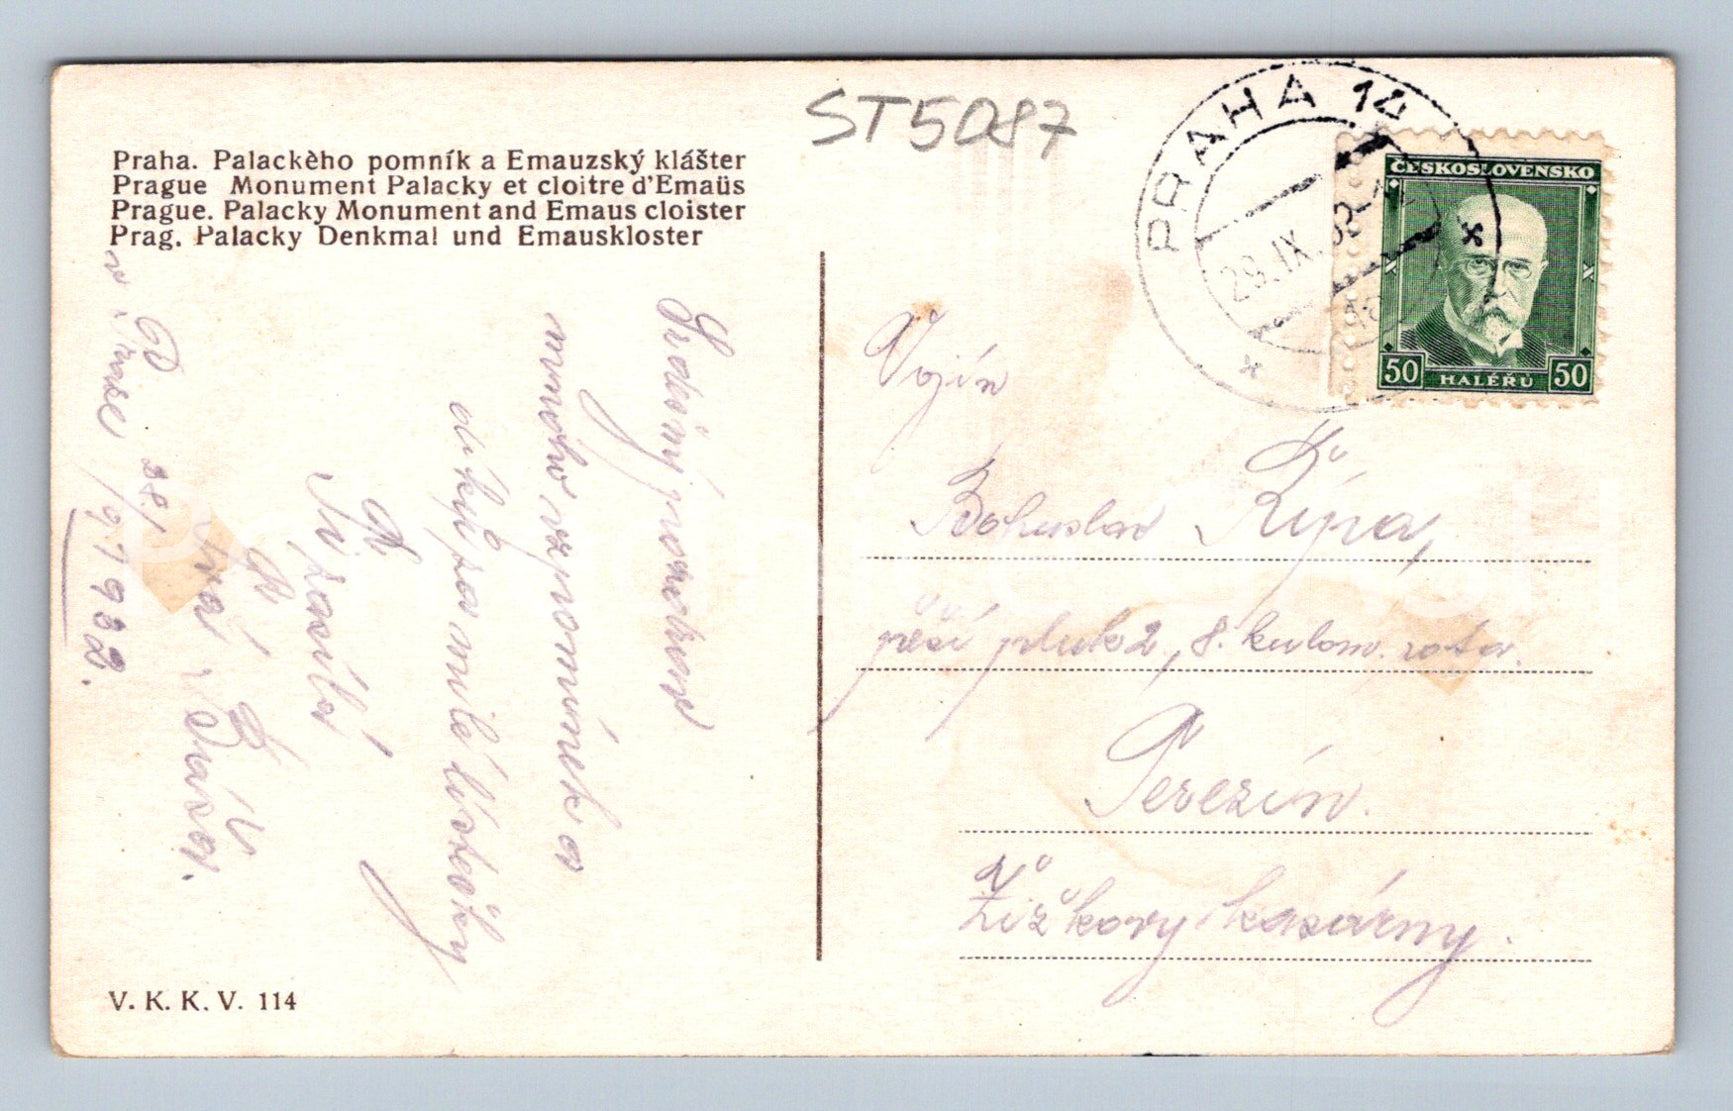 ST5087
Praha. Palackèho pomník a Emauzský klášter
Prague Monument Palacky et cloitre d'Emaüs
Prague. Palacky Monument and Emaus cloister
Prag. Palacky Denkmal und Emauskloster
PRAHA 14
29.IX.32
ČESKOSLOVENSKO
50 HALÉŘŮ 50
Srdečný pozdrav
mnoho vzpomínek a
díky za milé lístečky
Ti zasílá
Tvá
v Praze 28/9 1932.
Vojín
Bohuslav Řípa,
pěší pluk 2, 8. kulom. rota.
Terezín.
Žižkovy kasárny.
V. K. K. V. 114